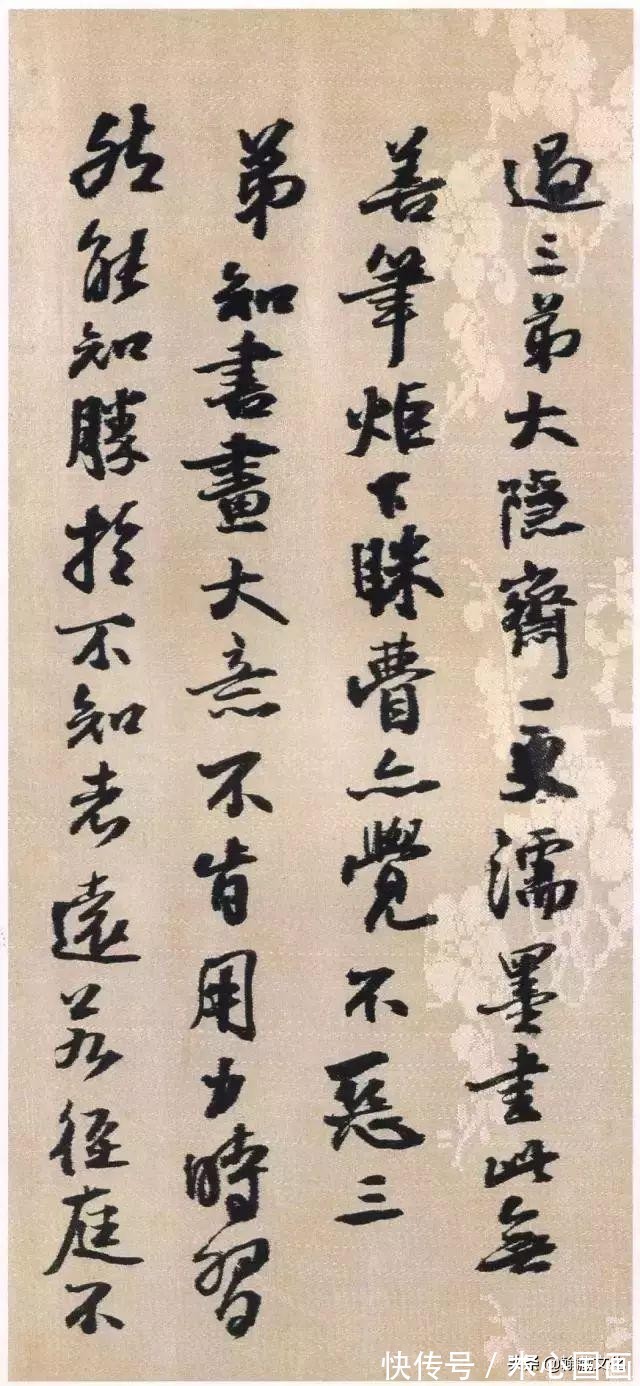 過三弟大隱齋更濡墨書此無
善筆炬下眯瞢亦覺不惡三
弟知書畫大意不肯用力時習
然能知勝於不知者遠若徑庭不
快传号 /